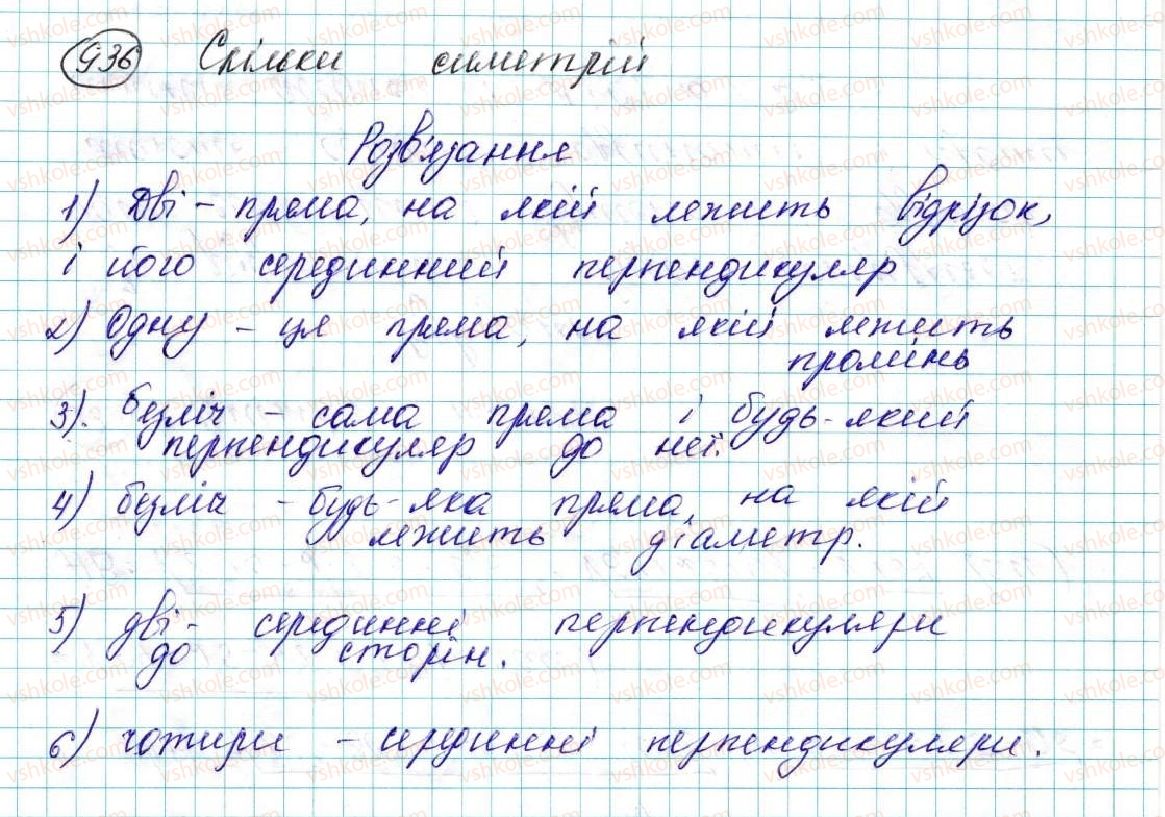 936 Скільки симетрій
Розв'язання
1) Дві - пряма, на якій лежить відрізок,
і його серединний перпендикуляр
2) Одну - ця пряма, на якій лежить
промінь
3). безліч - сама пряма і будь-який
перпендикуляр до неї.
4) безліч - будь-яка пряма, на якій
лежить діаметр.
5) дві - серединні перпендикуляри
до сторін.
6) чотири - серединні перпендикуляри.